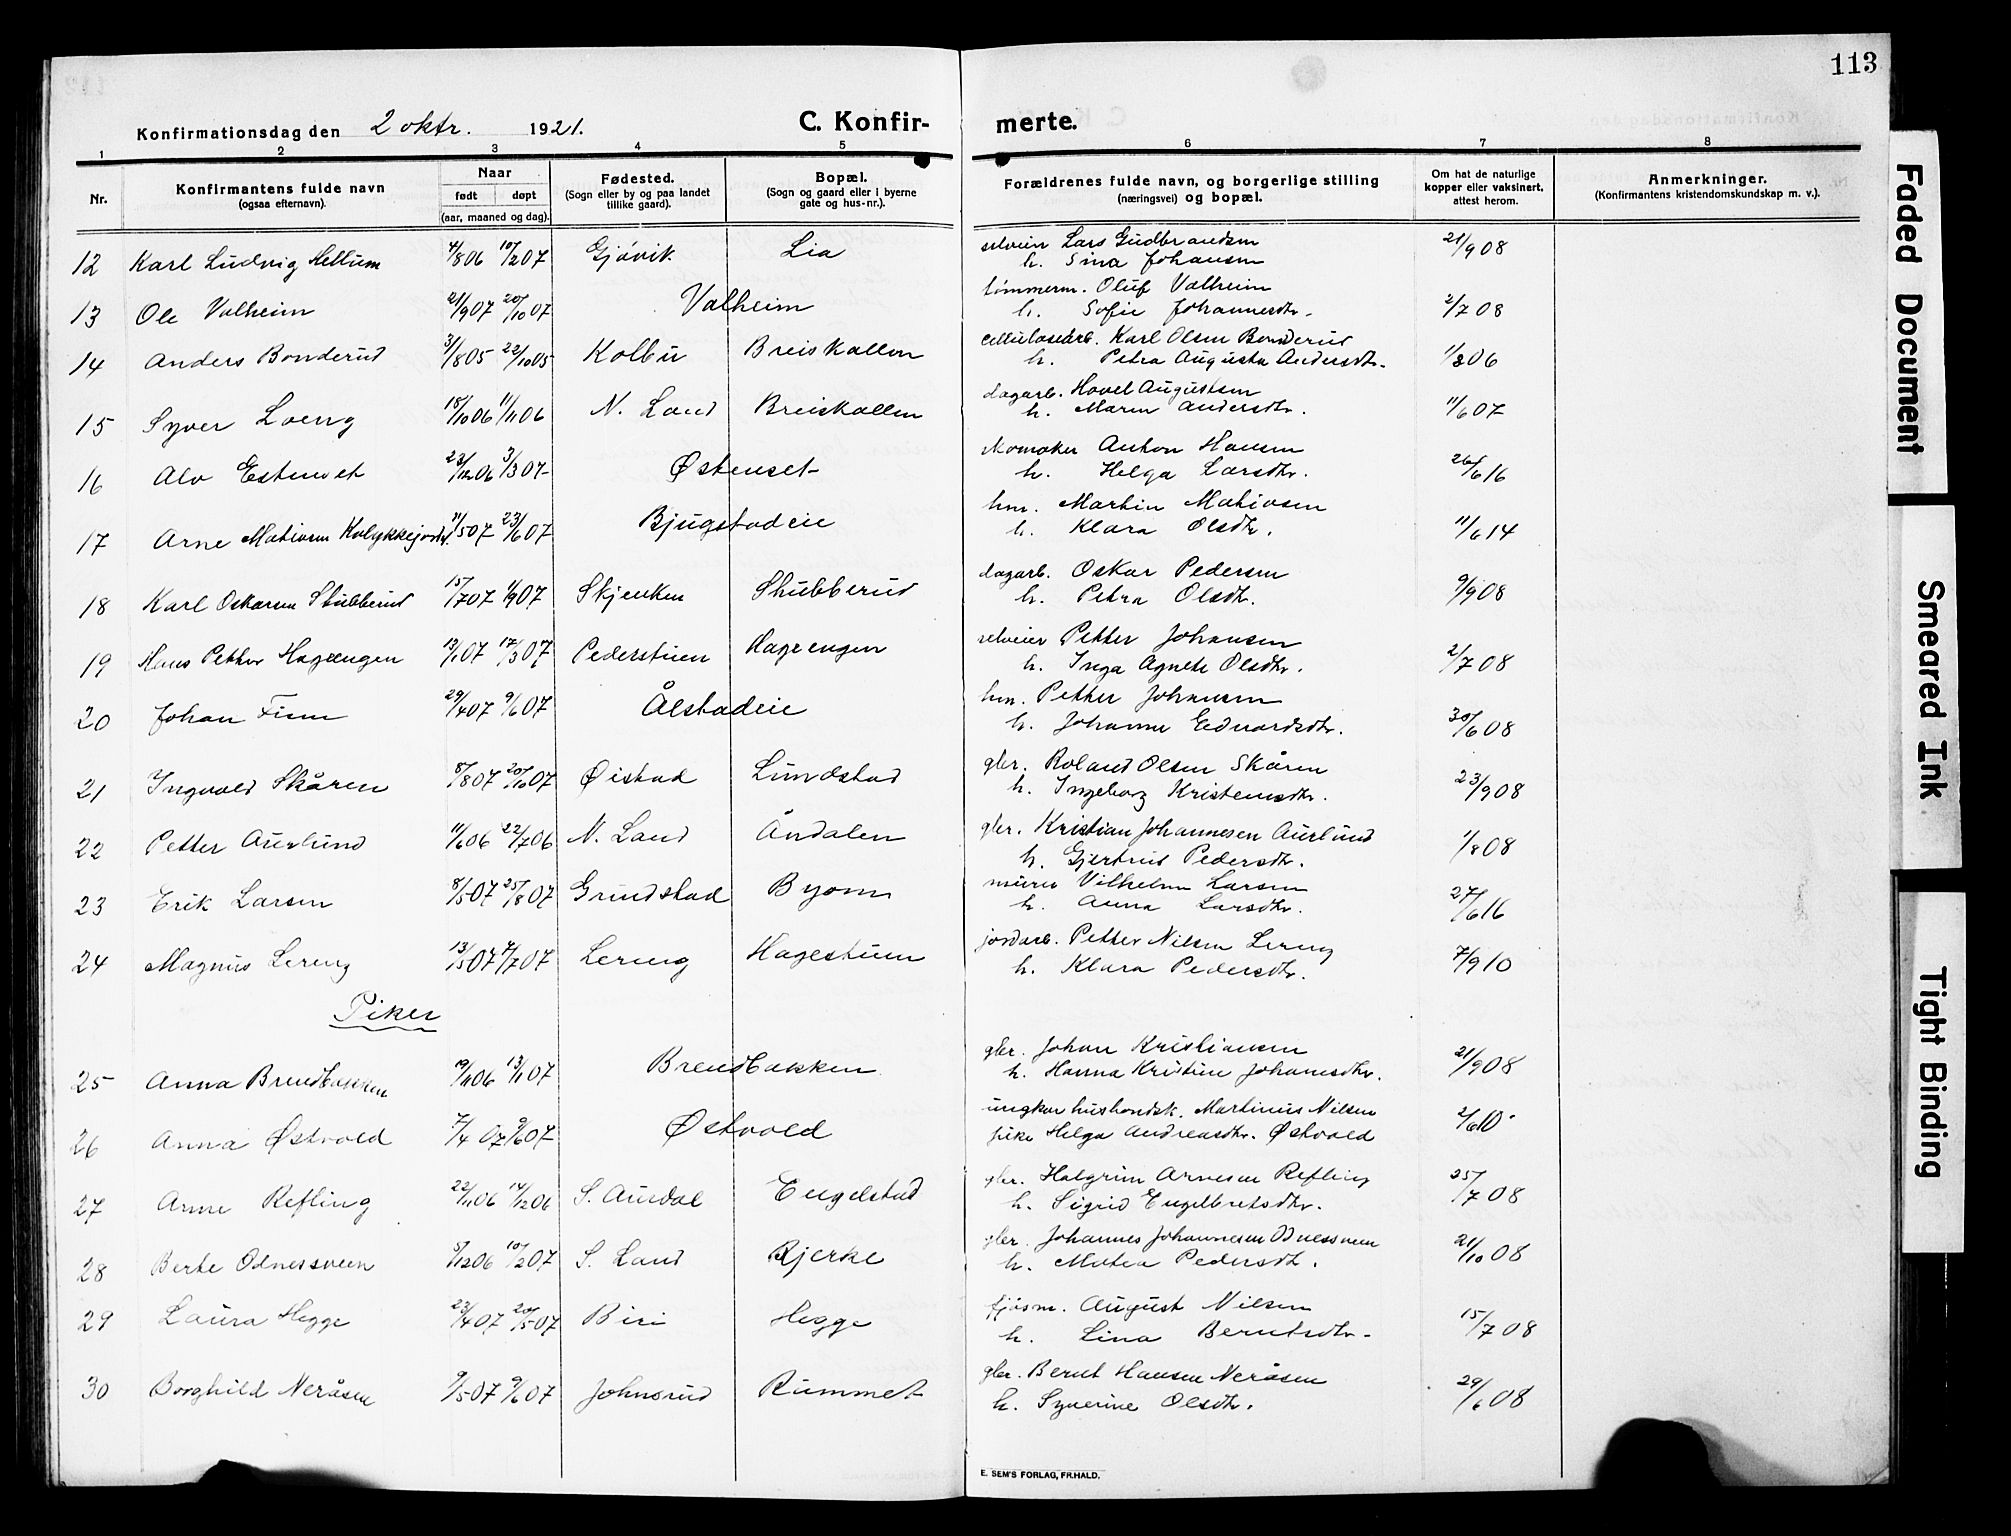 113
Konfirmationsdag den 2 oktr. 1921.
C. Konfirmerte.
1 2 3 4 5 6 7 8
Nr.
Konfirmantens fulde navn
(ogsaa efternavn).
Naar
født døpt
(aar, maaned og dag).
Fødested.
(Sogn eller by og paa landet
tillike gaard).
Bopæl.
(Sogn og gaard eller i byerne
gate og hus-nr.).
Forældrenes fulde navn, og borgerlige stilling
(næringsvei) og bopæl.
Om hat de naturlige
kopper eller vaksinert,
attest herom.
Anmerkninger.
(Konfirmantens kristendomskundskap m. v.).
12 Karl Ludvig Hellum 4/8 06 10/2 07 Gjøvik Lia selveier Lars Gudbrandsen 21/9 08
h. Sina Johansen
13 Ole Valheim 21/9 07 20/10 07 Valheim tømmerm. Oluf Valheim 2/7 08
h. Sofie Johannesdtr.
14 Anders Bonderud 31/8 05 22/10 05 Kolbu Breiskallen cellulosearb. Karl Olsen Bonderud 1/8 06
h. Petra Augusta Andersdtr.
15 Syver Loeng 18/10 06 11/11 06 N. Land Breiskallen dagarb. Hovel Augustsen 11/6 07
h. Maren Andersdtr.
16 Alv Estenset 23/12 06 3/3 07 Østenset skomaker Anton Hansen 26/6 16
h. Helga Larsdtr.
17 Arne Matiasen Kalykkejordet 11/5 07 23/6 07 Bjugstadeie hm. Martin Matiasen 11/6 14
h. Klara Olsdtr.
18 Karl Oskarsen Stubberud 15/7 07 1/9 07 Skjenken Stubberud dagarb. Oskar Pedersen 9/9 08
h. Petra Olsdtr.
19 Hans Petter Hagrengen 13/1 07 17/3 07 Pederstuen Hagrengen selveier Petter Johansen 2/7 08
h. Inga Agnete Olsdtr.
20 Johan Finn 29/4 07 9/6 07 Ålstadeie hm. Petter Johansen 30/6 08
h. Johanne Edvardsdtr.
21 Ingvald Skåren 8/8 07 20/10 07 Øistad Lundstad gbr. Roland Olsen Skåren 23/9 08
h. Ingeborg Kristensdtr.
22 Petter Aurlund 11/6 06 22/7 06 N. Land Åndalen gbr. Kristian Johannesen Aurlund 1/8 08
h. Gjertrud Pedersdtr.
23 Erik Larsen 8/5 07 25/8 07 Grundstad Byom murer Vilhelm Larsen 27/6 16
h. Anna Larsdtr.
24 Magnus Lereng 13/5 07 7/7 07 Lereng Hagestuen jordarb. Petter Nilsen Lereng 7/9 10
h. Klara Pedersdtr.
Piker
25 Anna Brendbakken 19/11 06 13/1 07 Brendbakken gbr. Johan Kristiansen 21/9 08
h. Hanna Kristine Johansdtr.
26 Anna Østvold 7/4 07 9/6 07 Østvold ungkar husbondsk. Martinus Nilsen 2/6 10
pike Helga Andreasdtr. Østvold
27 Anne Refling 22/11 06 14/12 06 S. Aurdal Engelstad gbr. Halgrim Arnesen Refling 25/7 08
h. Sigrid Engelbretsdtr.
28 Berte Odnessveen 5/12 06 10/2 07 S. Land Bjerke gbr. Johannes Johannesen Odnessveen 21/10 08
h. Matea Pedersdt.
29 Laura Hegge 23/4 07 20/5 07 Biri Hegge fjøsm. August Nilsen 15/7 08
h. Lina Berntsdtr.
30 Borghild Neråsen 9/5 07 9/6 07 Johnsrud Rummet gbr. Bernt Hansen Neråsen 29/6 08
h. Syverine Olsdtr.
E. SEM'S FORLAG, FR.HALD.
Faded Document
Smeared Ink
Tight Binding